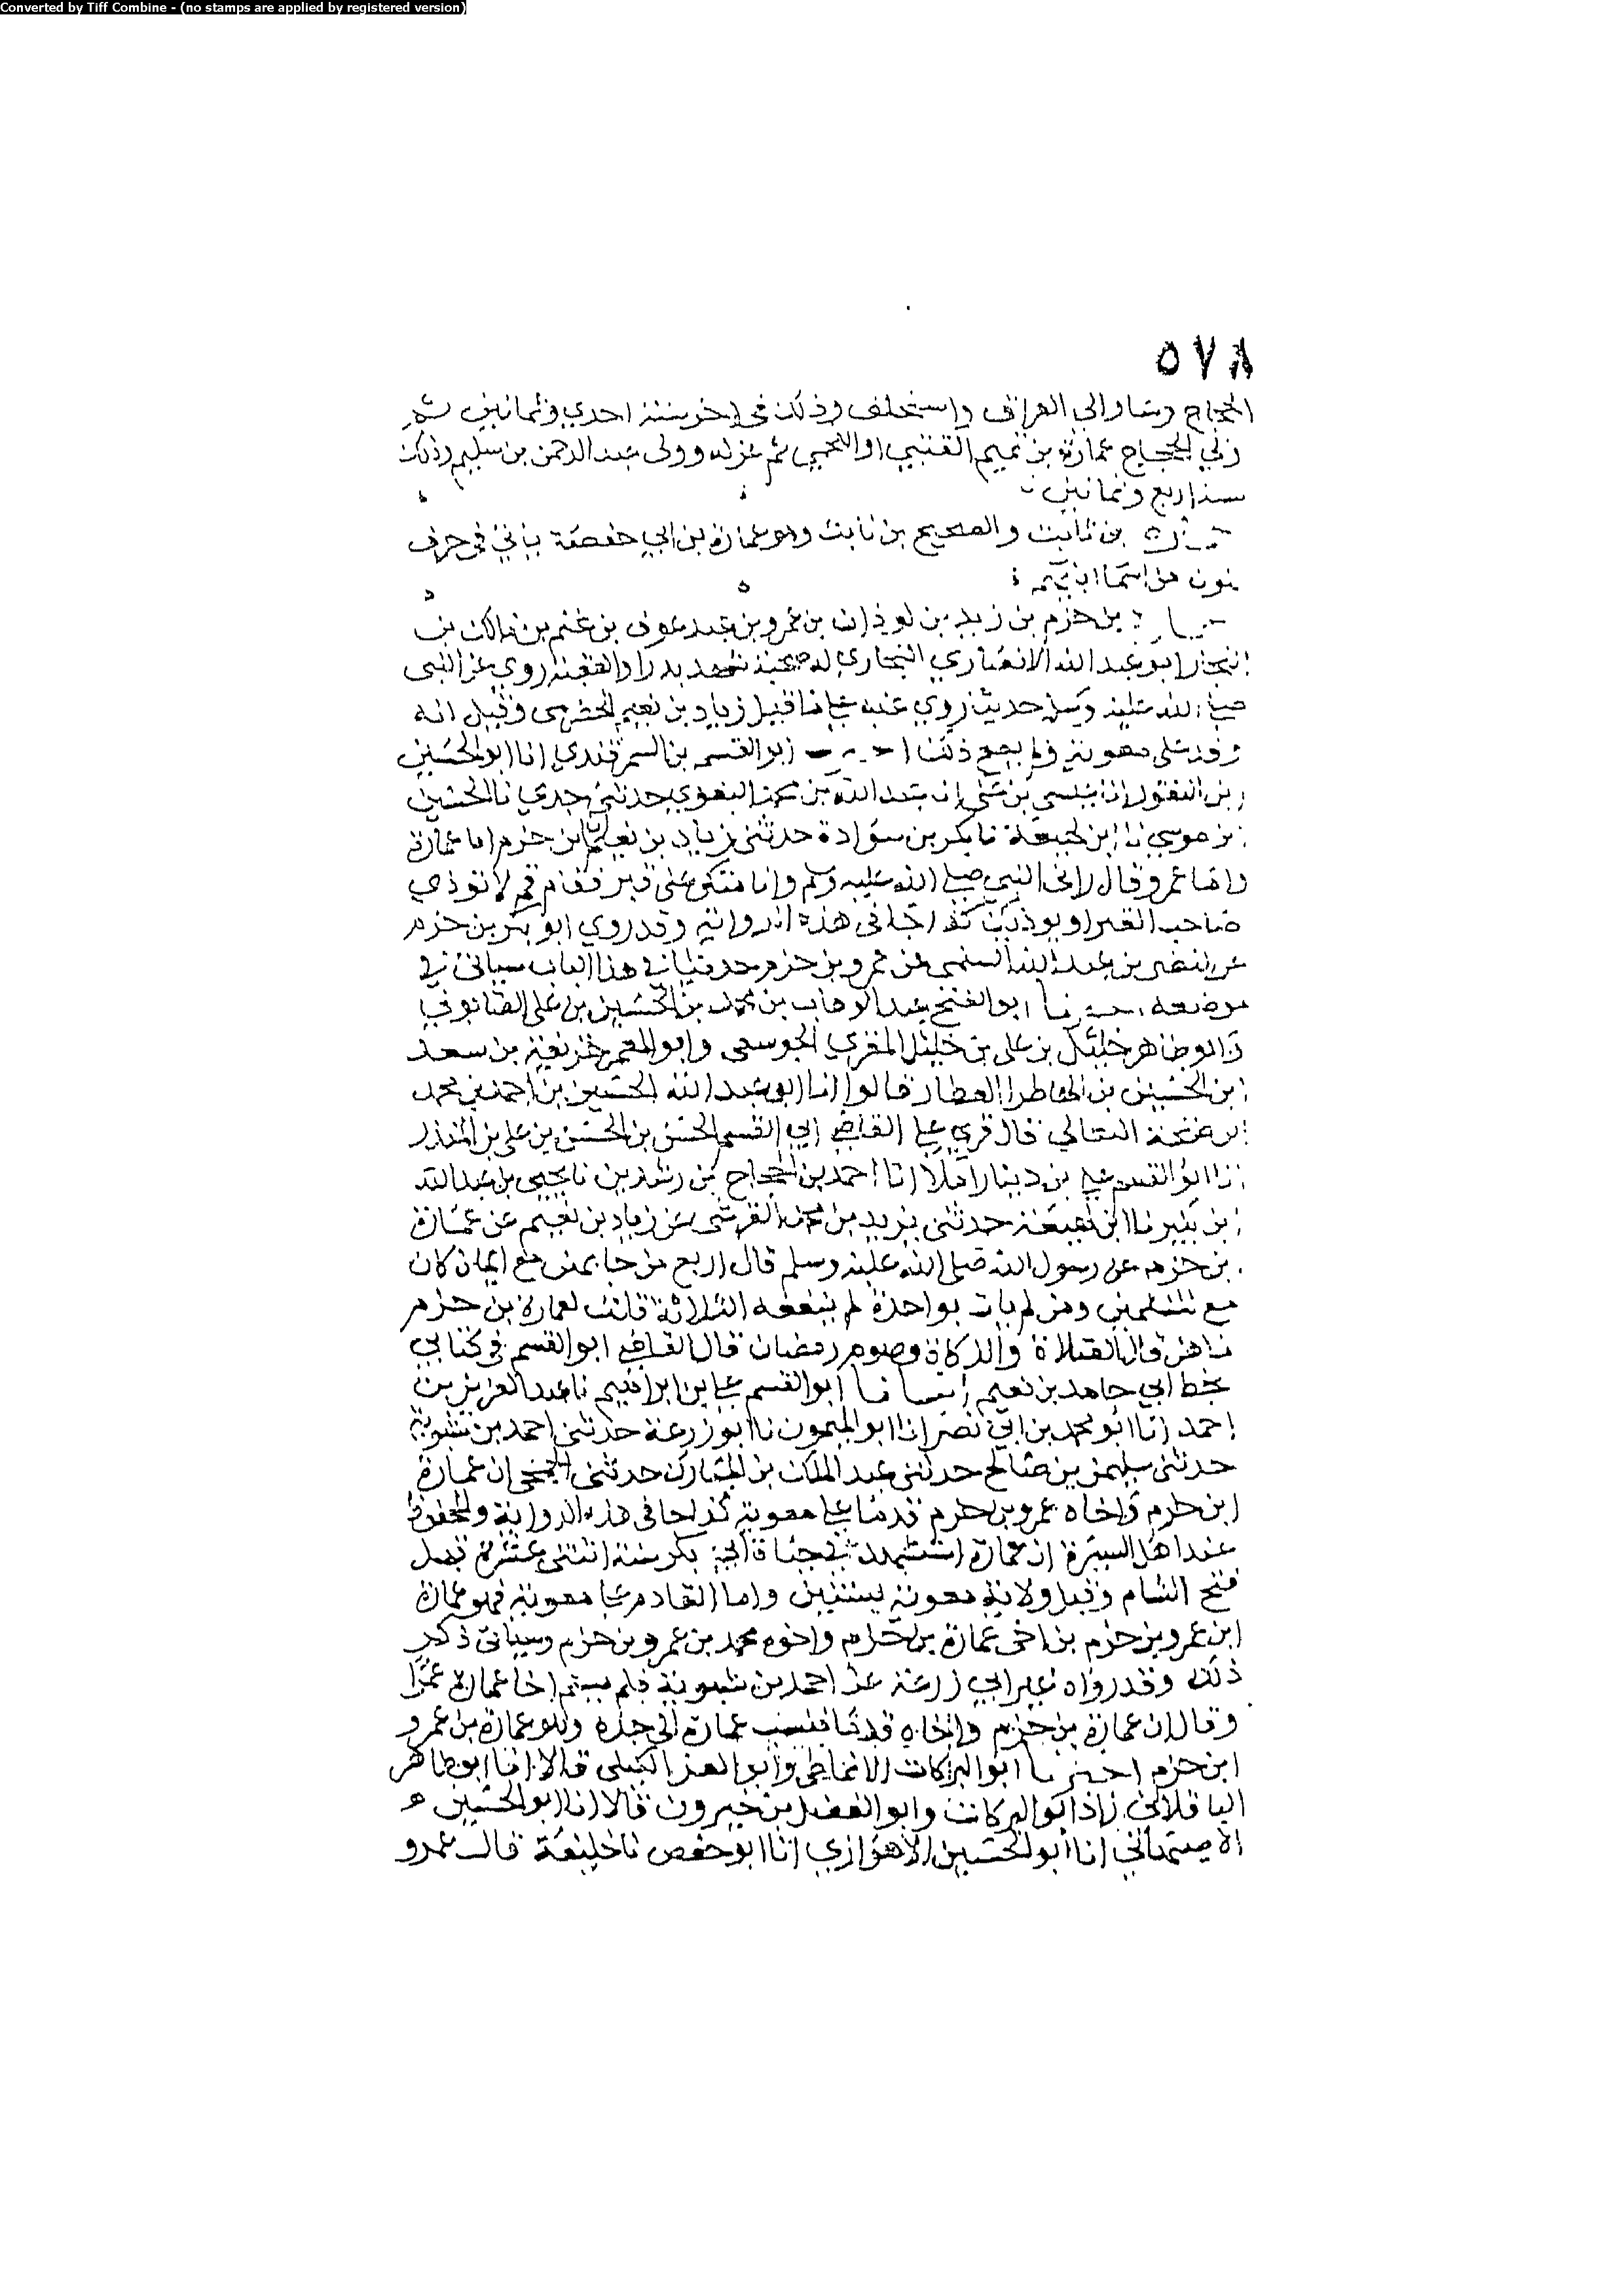 Converted by Tiff Combine - (no stamps are applied by registered version)
٥٧٨
الحجاج وسار الى العراق واستخلف وذلك في اخر سنة احدي وثمانين ثم
ولي الحجاج عمارة بن تميم القيني او اللخمي ثم عزله وولى عبد الرحمن بن سليم وذلك
سنة اربع وثمانين
بن ثابت والصحيح بن نابت وهو عمارة بن ابي حفصة ياتي في حرف
نون من اسما ابايهم
بن حزم بن زيد بن لوذان بن عمرو بن عبد عوف بن غنم بن مالك بن
النجار ابو عبد الله الانصاري النجاري له صحبة شهد بدرا والعقبة روي عن النبي
صلى الله عليه وسلم حديثا روي عنه فيما قيل زياد بن نعيم الحضرمي وقيل انه
وفد على معوية ولم يصح ذلك ابو القسم بن السمرقندي انا ابو الحسين
بن النقور انا عيسي بن علي انا عبد الله بن محمد البغوي حدثني جدي نا الحسن
بن موسي نا ابن لهيعة نا بكر بن سوادة حدثني زياد بن نعيم ان ابن حزم اما عمارة
واما عمرو قال راني النبي صلى الله عليه وسلم وانا متكي على قبر فقام قم لا توذي
صاحب القبر او يوذيك كذا جا في هذه الرواية وقد روي ابو بكر بن حزم
عن النضر بن عبد الله السلمى عن عمرو بن حزم حديثا في هذا الباب سياتي في
موضعه ابو الفتح عبد الوهاب بن محمد بن الحسين بن علي الصابوني
وابو طاهر خليل بن علي بن خليل المقري الجوسقي وابو المعمر خزيفة بن سعد
ابن الحسين بن الهاطرا العطار قالوا انا ابو عبد الله الحسين بن احمد بن محمد
بن طلحة النعالي قال قري على القاضي ابي القسم الحسن بن الحسن بن علي بن المنذر
نا ابو القسم علي بن دينار املا انا احمد بن الحجاج بن رشدين نا يحيي بن عبد الله
بن بكير نا ابن لهيعة حدثني يزيد بن محمد القرشي عن زياد بن نعيم عن عمارة
بن حزم عن رسول الله صلى الله عليه وسلم قال اربع من جا بهن مع ايمان كان
مع المسلمين ومن لم يات بواحدة لم ينفعه الثلاثة قلت لعمارة بن حزم
ما هن قال الصلاة والزكاة وصوم رمضان قال القاضي ابو القسم في كتابي
بخط ابي حامد بن نعيم ابو القسم علي بن ابراهيم نا عبد العزيز بن
احمد انا ابو محمد بن ابي نصر انا ابو الميمون نا ابو زرعة حدثني احمد بن شبوية
حدثني سليمن بن صالح حدثني عبد الملك بن المبارك حدثني ان عمارة
ابن حزم واخاه عمرو بن حزم قدما على معوية كذا جا في هذه الرواية والمحفوظ
عند اهل السيرة ان عمارة استشهد في خلافة ابي بكر سنة اثنتي عشرة قبل
فتح الشام وقبل ولاية معوية بسنين واما القادم على معوية فهو عمارة
ابن عمرو بن حزم بن اخى عمارة بن حزم واخوه محمد بن عمرو بن حزم وسياتي ذكر
ذلك وقد رواه غير ابي زرعة عن احمد بن شبوية فلم يسم اخا عمارة عمرا
وقال ان عمارة بن حزم واخاه قدما فنسب عمارة الى جده وهو عمارة بن عمرو
ابن حزم ابو البركات الانماطي وابو العز الكيلي قالا انا ابو طاهر
الباقلاني زاد ابو البركات وابو الفضل بن خيرون قالا انا ابو الحسين
الاصبهاني انا ابو الحسين الاهوازي انا ابو حفص نا خليفة قال عمرو